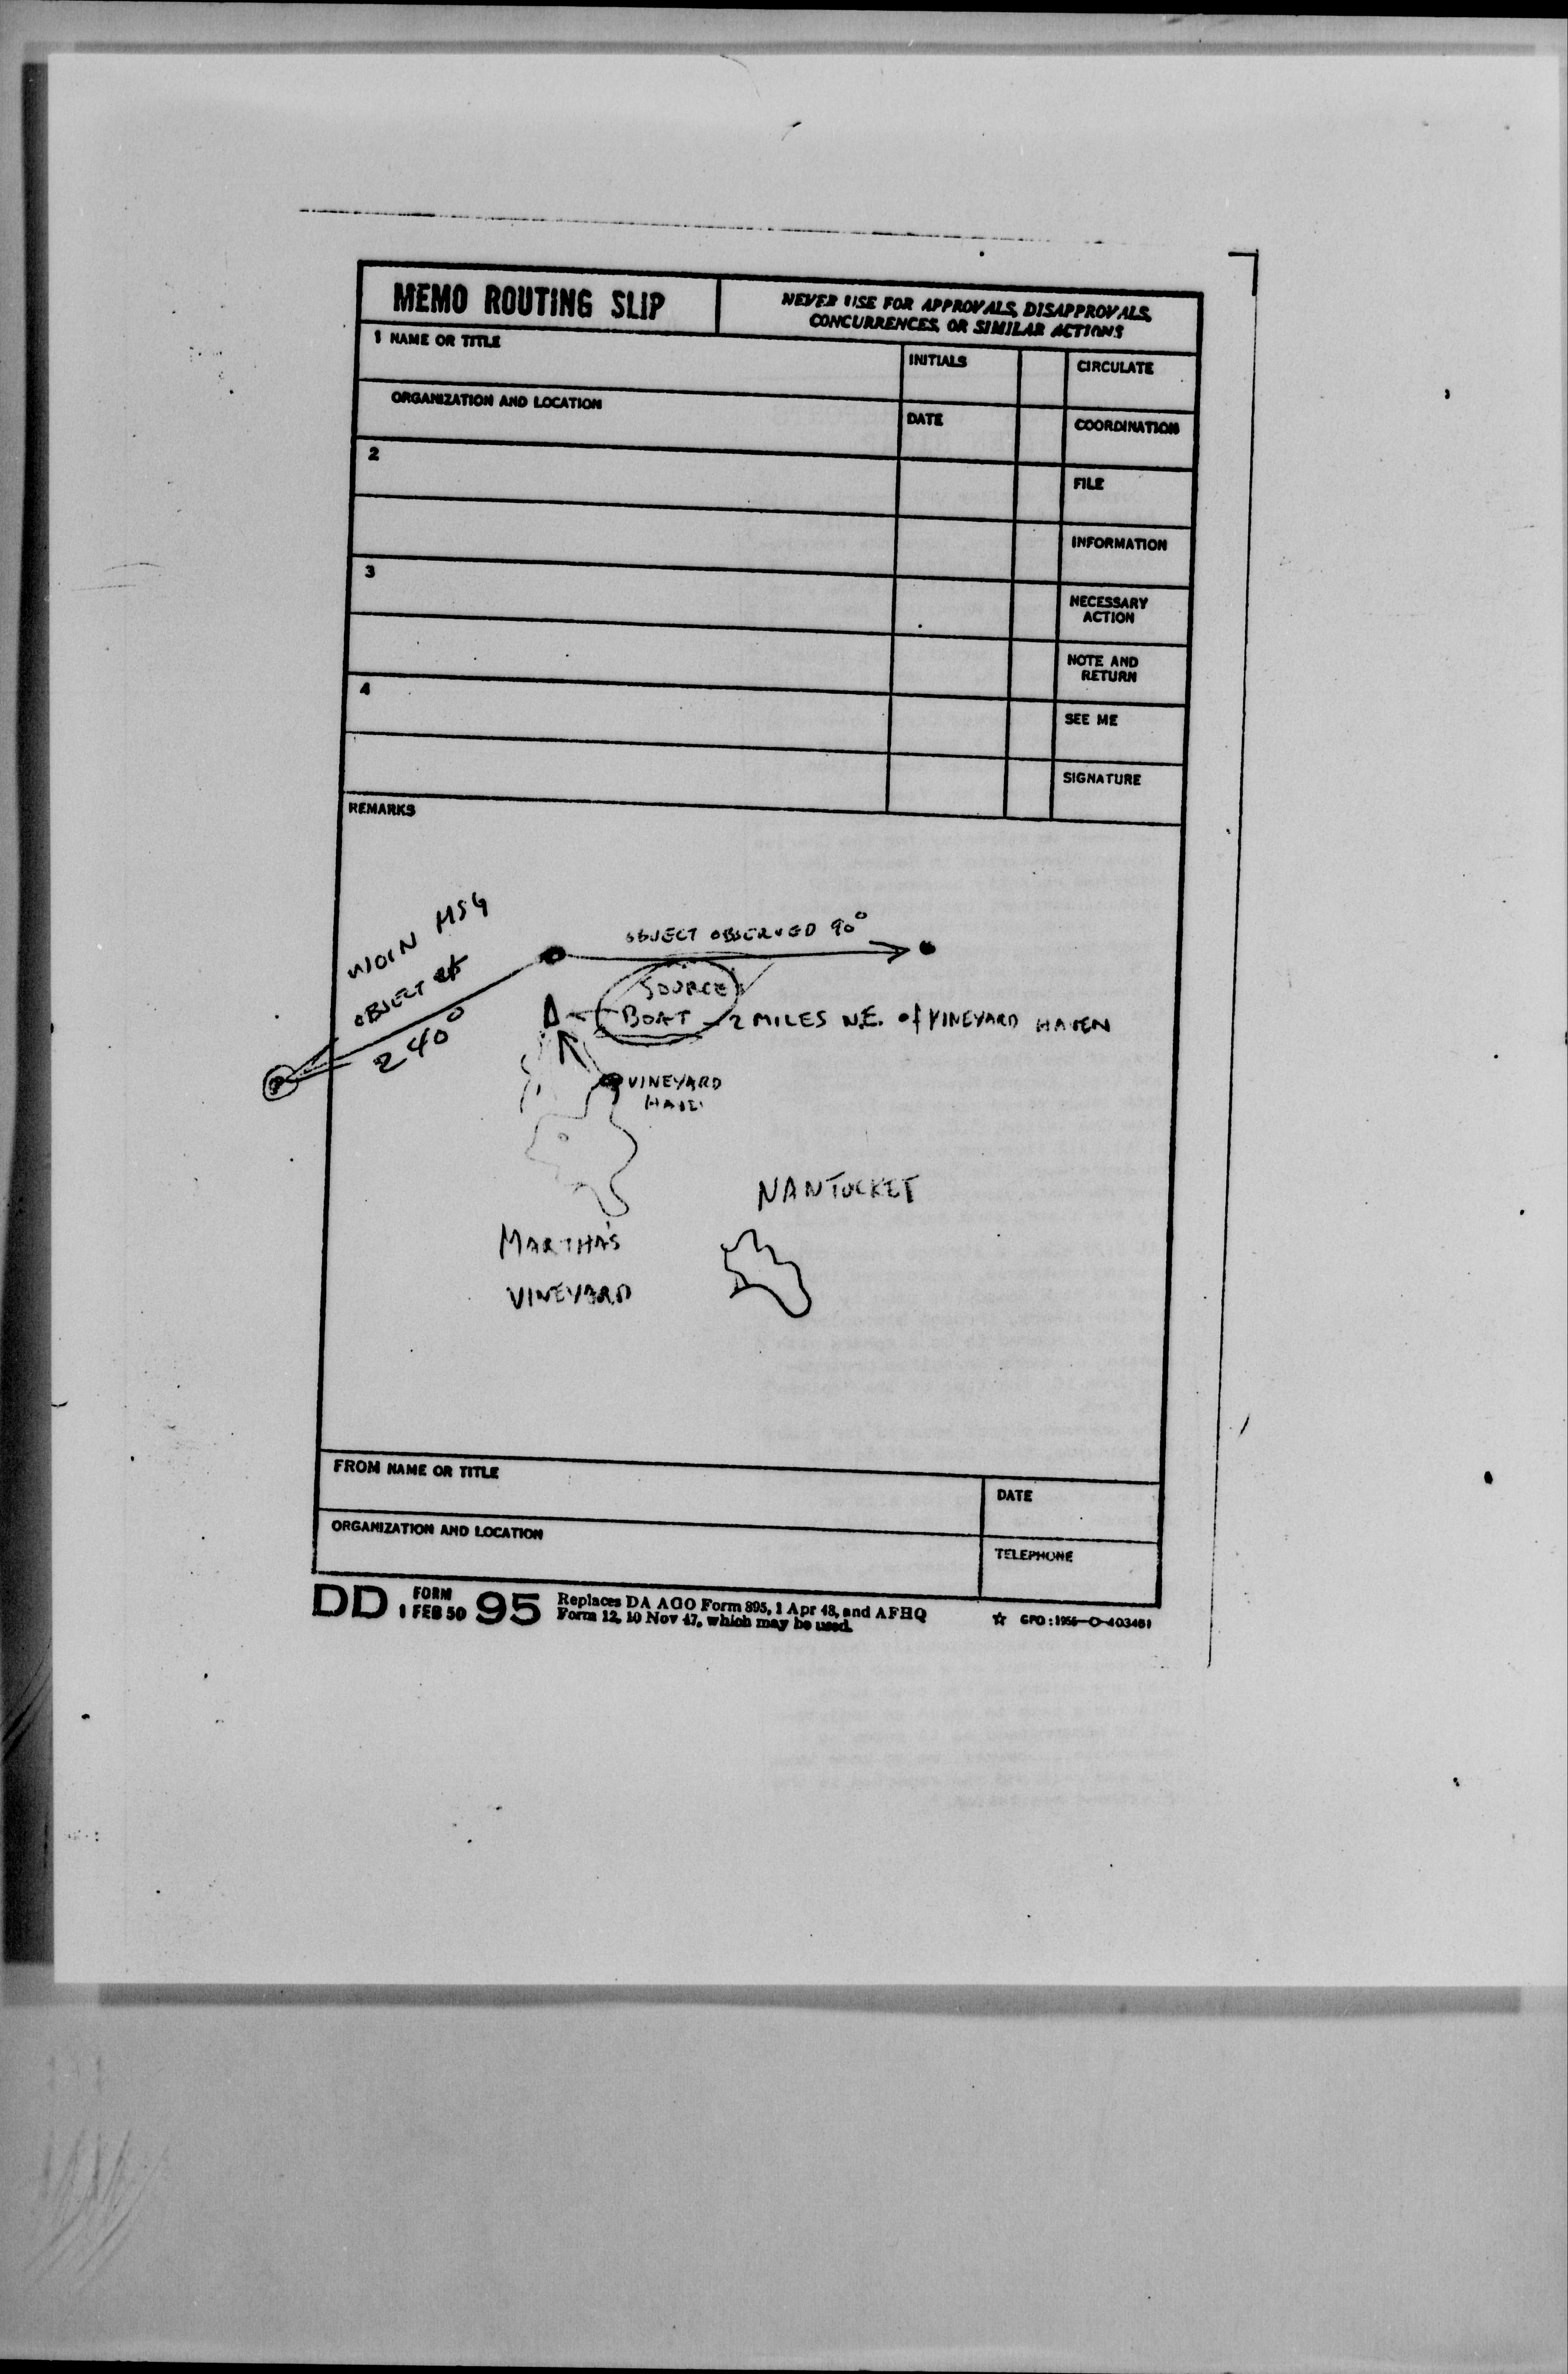 MEMO ROUTING SLIP
NEVER USE FOR APPROVALS, DISAPPROVALS,
CONCURRENCES, OR SIMILAR ACTIONS
1 NAME OR TITLE
INITIALS
CIRCULATE
ORGANIZATION AND LOCATION
DATE
COORDINATION
2
FILE
INFORMATION
3
NECESSARY
ACTION
NOTE AND
RETURN
4
SEE ME
SIGNATURE
REMARKS
MSG
OBJECT
240°
OBJECT OBSERVED 90°
SOURCE
BOAT 2 MILES N.E. of VINEYARD HAVEN
VINEYARD
NANTUCKET
MARTHA'S
VINEYARD
FROM NAME OR TITLE
DATE
ORGANIZATION AND LOCATION
TELEPHONE
DD FORM 95
1 FEB 50
Replaces DA AGO Form 895, 1 Apr 48, and AFHQ
Form 12, 10 Nov 47, which may be used.
☆ GPO: 1956-O-403461